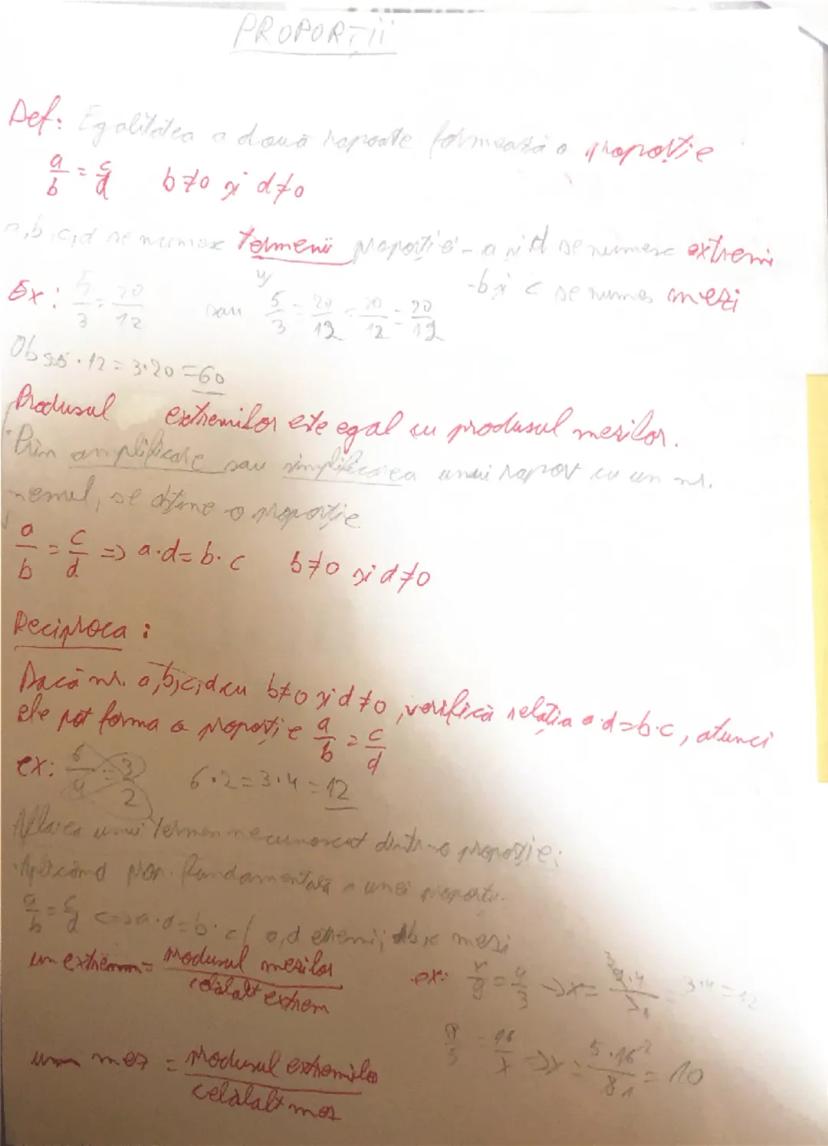 PROPORȚII
Def: Egalitatea a două rapoarte formează o propoție
a/b = c/d b≠0 și d≠0
a,b,c,d se numesc termenii proporției - a și d se numesc extremi
- b și c se numes mezi
Ex: 5/3 = 20/12 sau 5/3 = 20/12 = 20/12 = 20/12
Obs: 5·12=3·20=60
Produsul extremilor este egal cu produsul mezilor.
Prin amplificare sau simplificarea unui raport cu un nr.
nenul, se obține o proporție
a/b = c/d => a·d=b·c b≠0 și d≠0
Reciproca:
Dacă nr. a,b,c,d cu b≠0 și d≠0, verifică relația a·d=b·c, atunci
ele pot forma o proporție a/b = c/d
ex: 6/4 = 3/2 6·2=3·4=12
Aflarea unui termen necunoscut dintr-o propoție:
Aplicând prop. fundamentală a unei proporți
a/b = c/d <=> a·d=b·c / a,d extremi; b,c mezi
un extrem = Produsul mezilor/celălalt extrem ex: x/9 = 4/3 -> x = 9·4/3 = 3·4=12
un mez = Produsul extremilor/celălalt mez 8/5 = 16/x -> x = 5·16/8 = 10